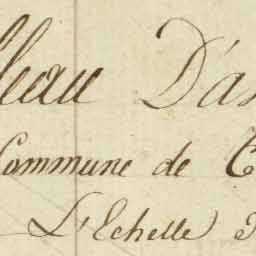 leau D'as
Commune de C
L'Echelle